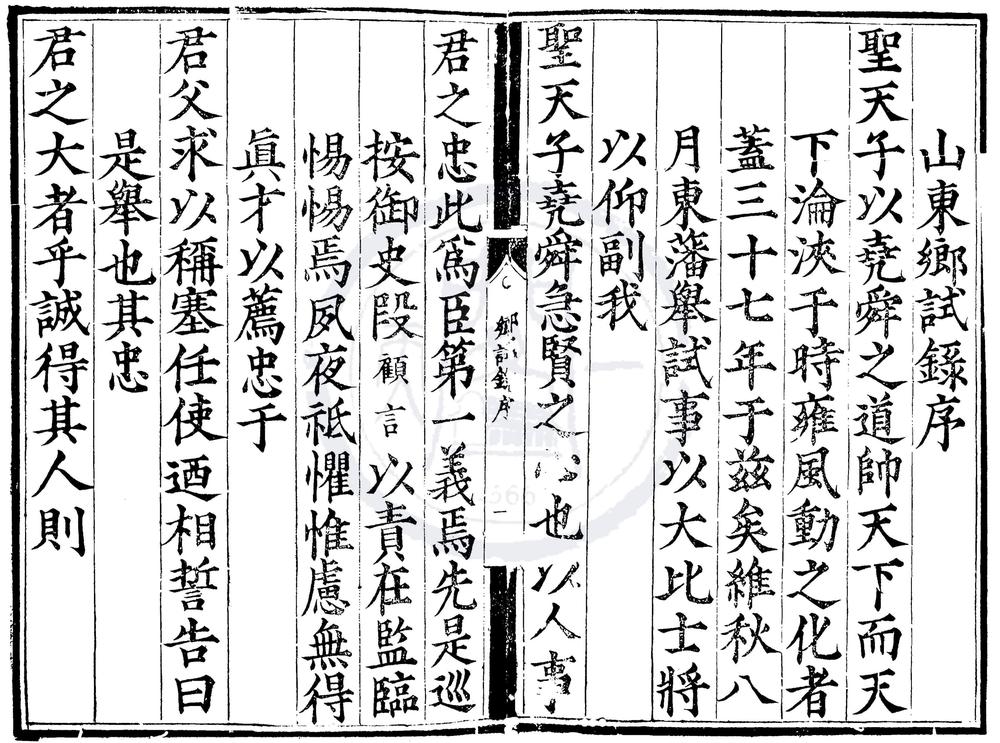 山東鄉試錄序
聖天子以堯舜之道帥天下而天
下淪浹于時雍風動之化者
蓋三十七年于茲矣維秋八
月東藩舉試事以大比士將
以仰副我
聖天子堯舜急賢之也以人事
鄉試錄序
一
君之忠此爲臣第一義焉先是巡
按御史段顧言以責在監臨
惕惕焉夙夜祗懼惟慮無得
眞才以薦忠于
君父求以稱塞任使迺相誓告曰
是舉也其忠
君之大者乎誠得其人則